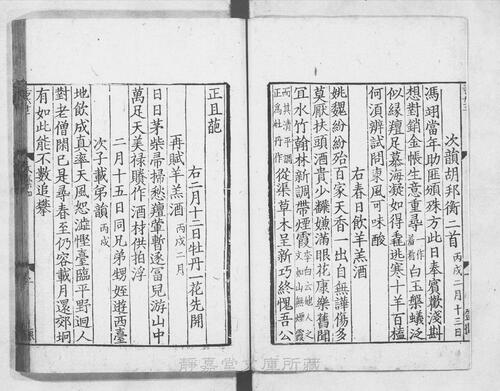 次韻胡邦衡二首 丙戌二月十三日
馮翊當年助匪頒殊方此日奉賓歡淺斟
想對銷金帳生意重尋白玉槃蟻泛
似緣羶足慕海凝如得毳逃寒十羊百榼
何須辨試問東風可味酸
右春日飲羊羔酒
姚魏紛紛殆百家天香一出自無譁傷多
莫厭扶頭酒貴少纔嬌滿眼花康樂舊聞
宜水竹翰林新調帶煙霞
而其清平調正為牡丹作從渠草木呈新巧終愧吾公
正且葩
右二月十三日牡丹一花先開
再賦羊羔酒 丙戌二月
日日茅柴帚掃愁羶葷暫逐冝兒游山中
萬足天美祿賸作酒材供拍浮
二月十五日同兄弟甥姪遊西臺
次子載弟韻 丙戌
地飲成真率天風恕澁慳臺臨平野迥人
對老僧閑已是尋春至仍容載月還郊坰
有如此能不數追攀
靜嘉堂文庫所藏